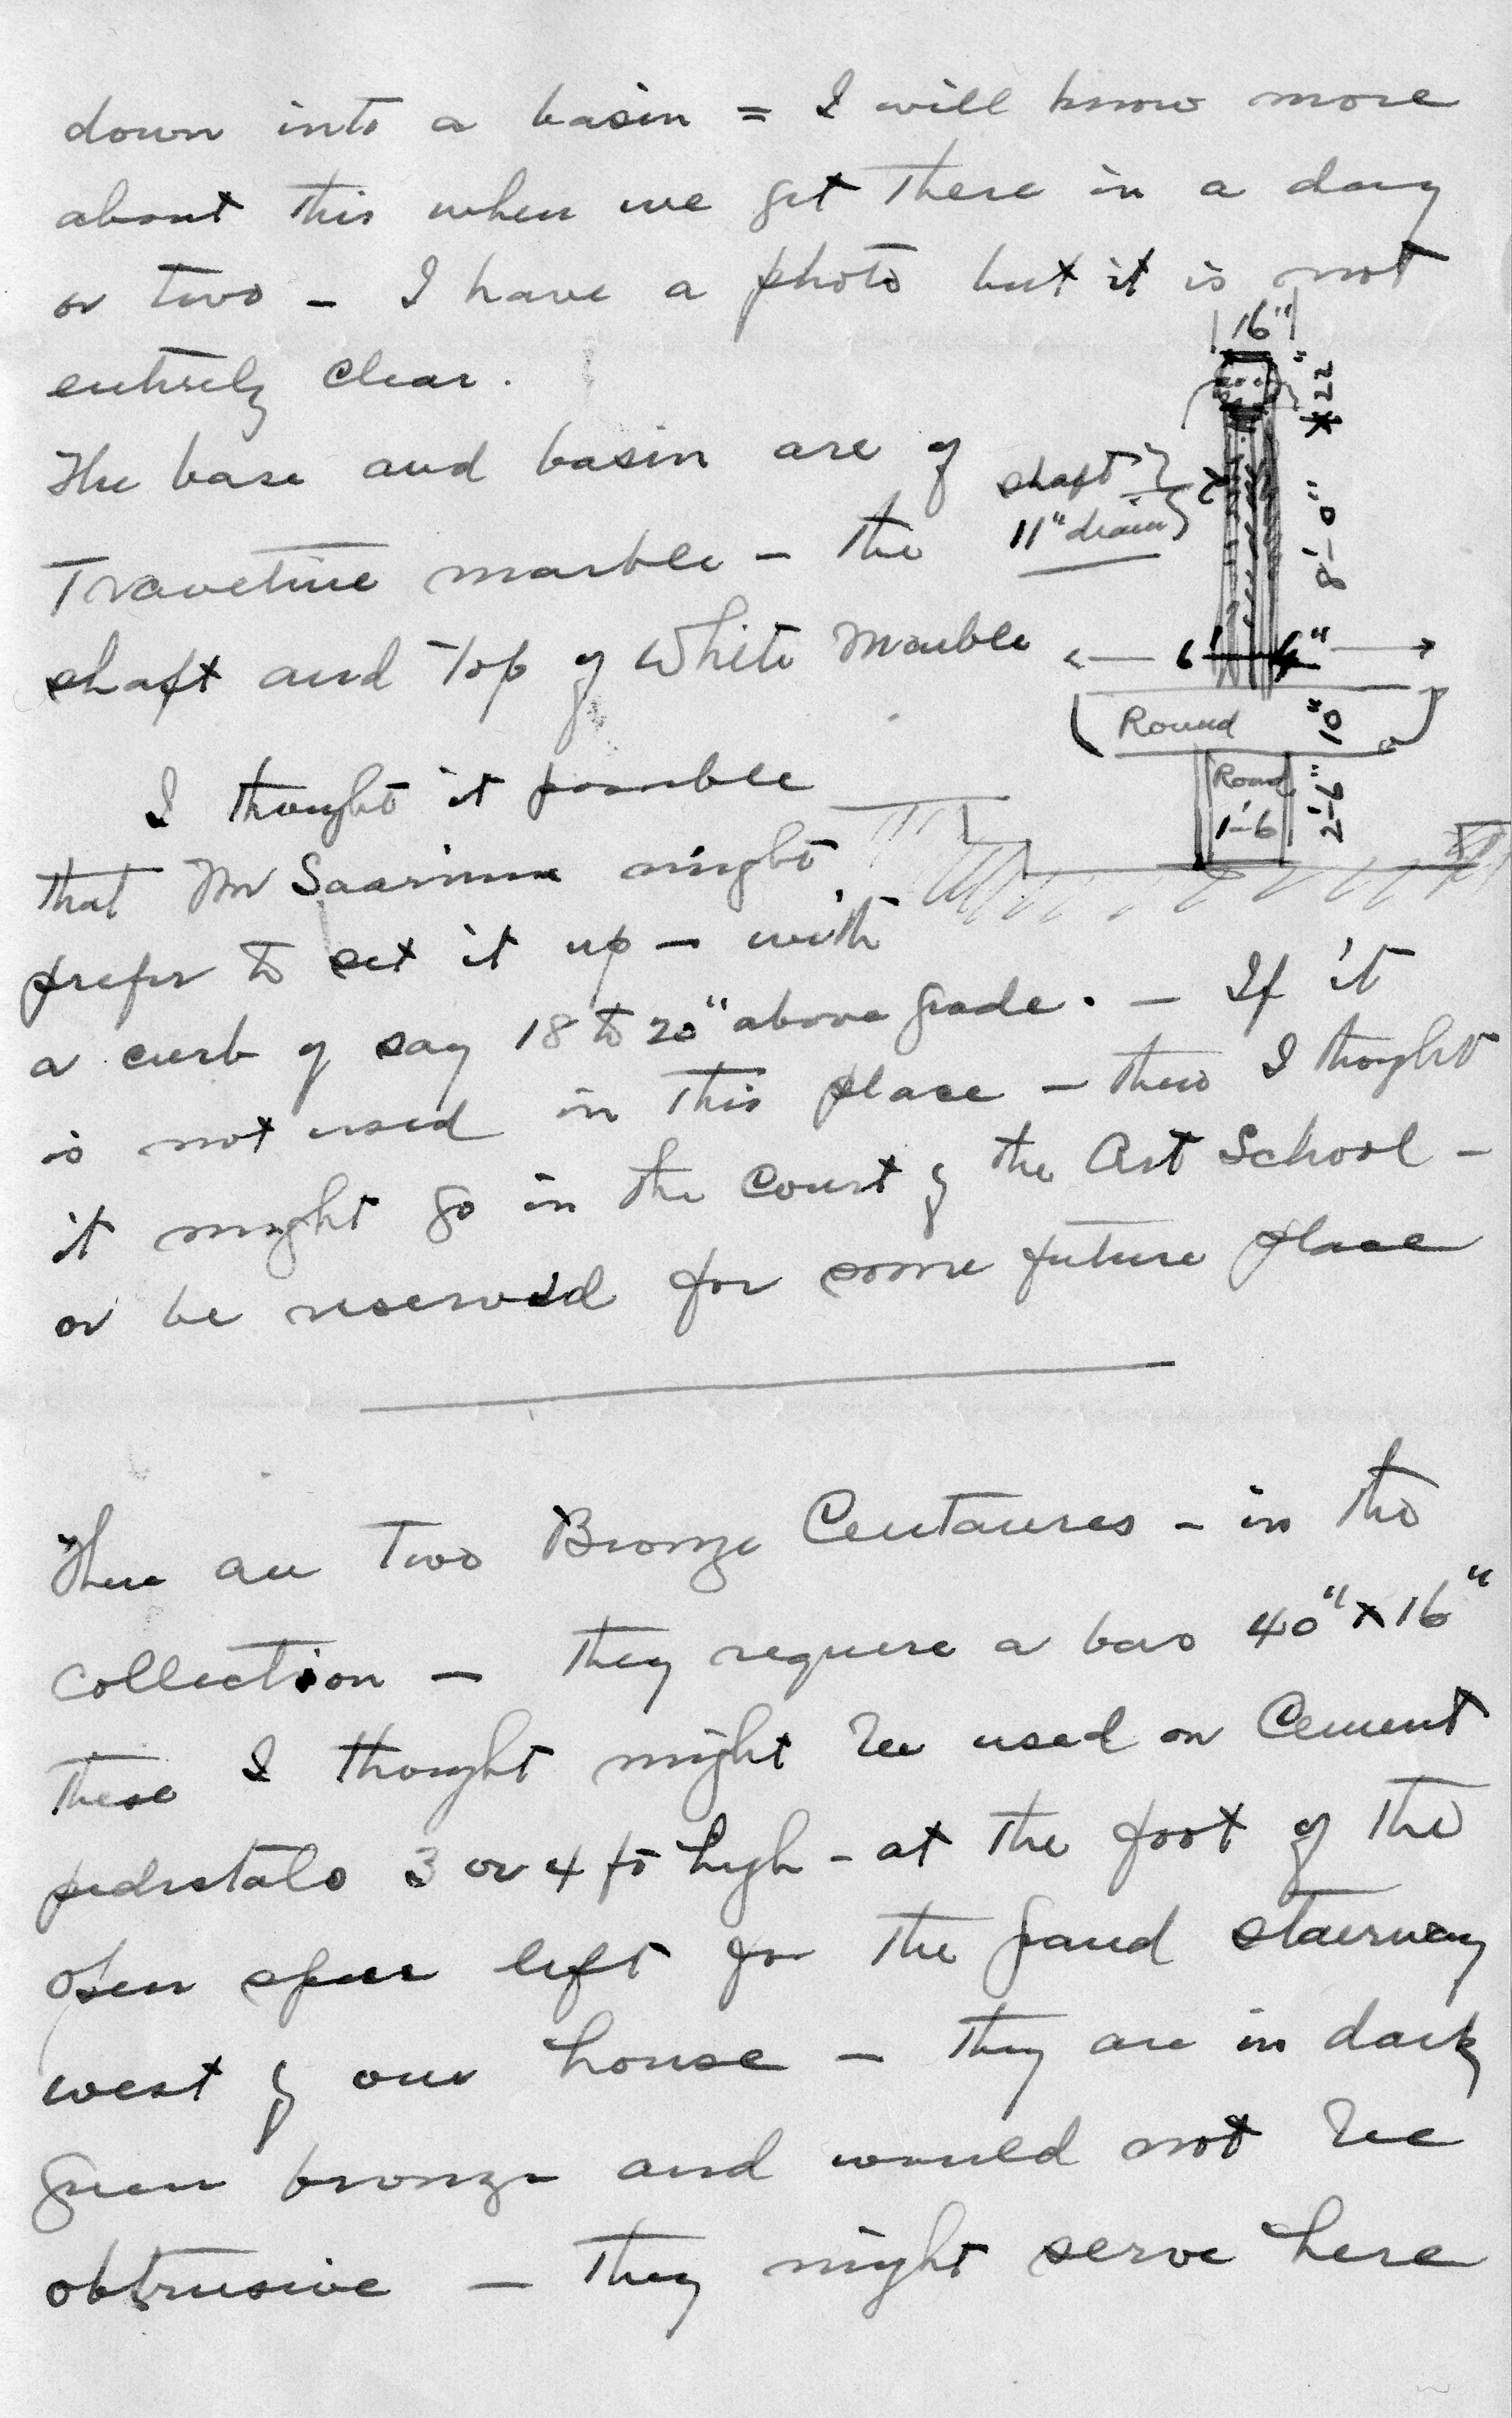 down into a basin = I will know more
about this when we get there in a day
or two - I have a photo but it is not
entirely clear.
16"
22"
The base and basin are of
shaft
11" diam
8'-0"
Travetine marble - the
shaft and top of White Marble
6' 4"
Round
10"
Round
1'-6
2'-6"
I thought it possible
that Mr Saarinen might
prefer to set it up - with
a curb of say 18 to 20" above grade. - If it
is not used in this place - then I thought
it might go in the court of the Art School -
or be reserved for some future place
There are two Bronze Centaures - in the
collection - they require a base 40" x 16"
These I thought might be used on Cement
pedestals 3 or 4 ft high - at the foot of the
open space left for the grand stairway
west of our house - they are in dark
green bronze and would not be
obtrusive - they might serve here